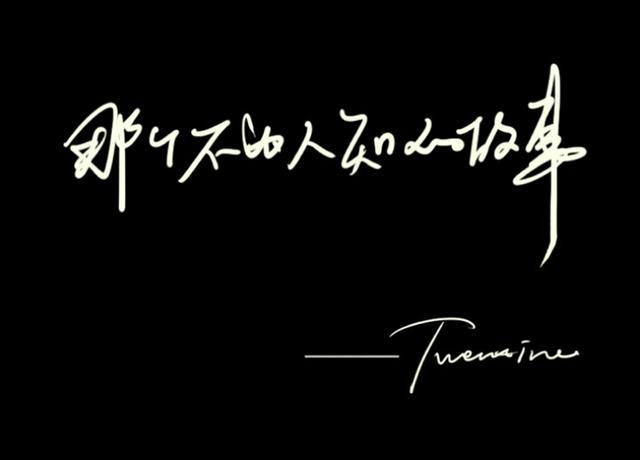 那个不为人知的故事
——Twentine